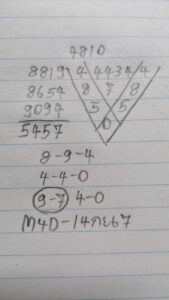 4810
8819 4 4434 4
8654 8 7 8
9094 5 5
5457 0
8-9-4
4-4-0
9-7 4-0
M4D-14กย67